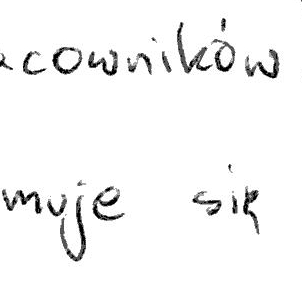 acowników
muje się